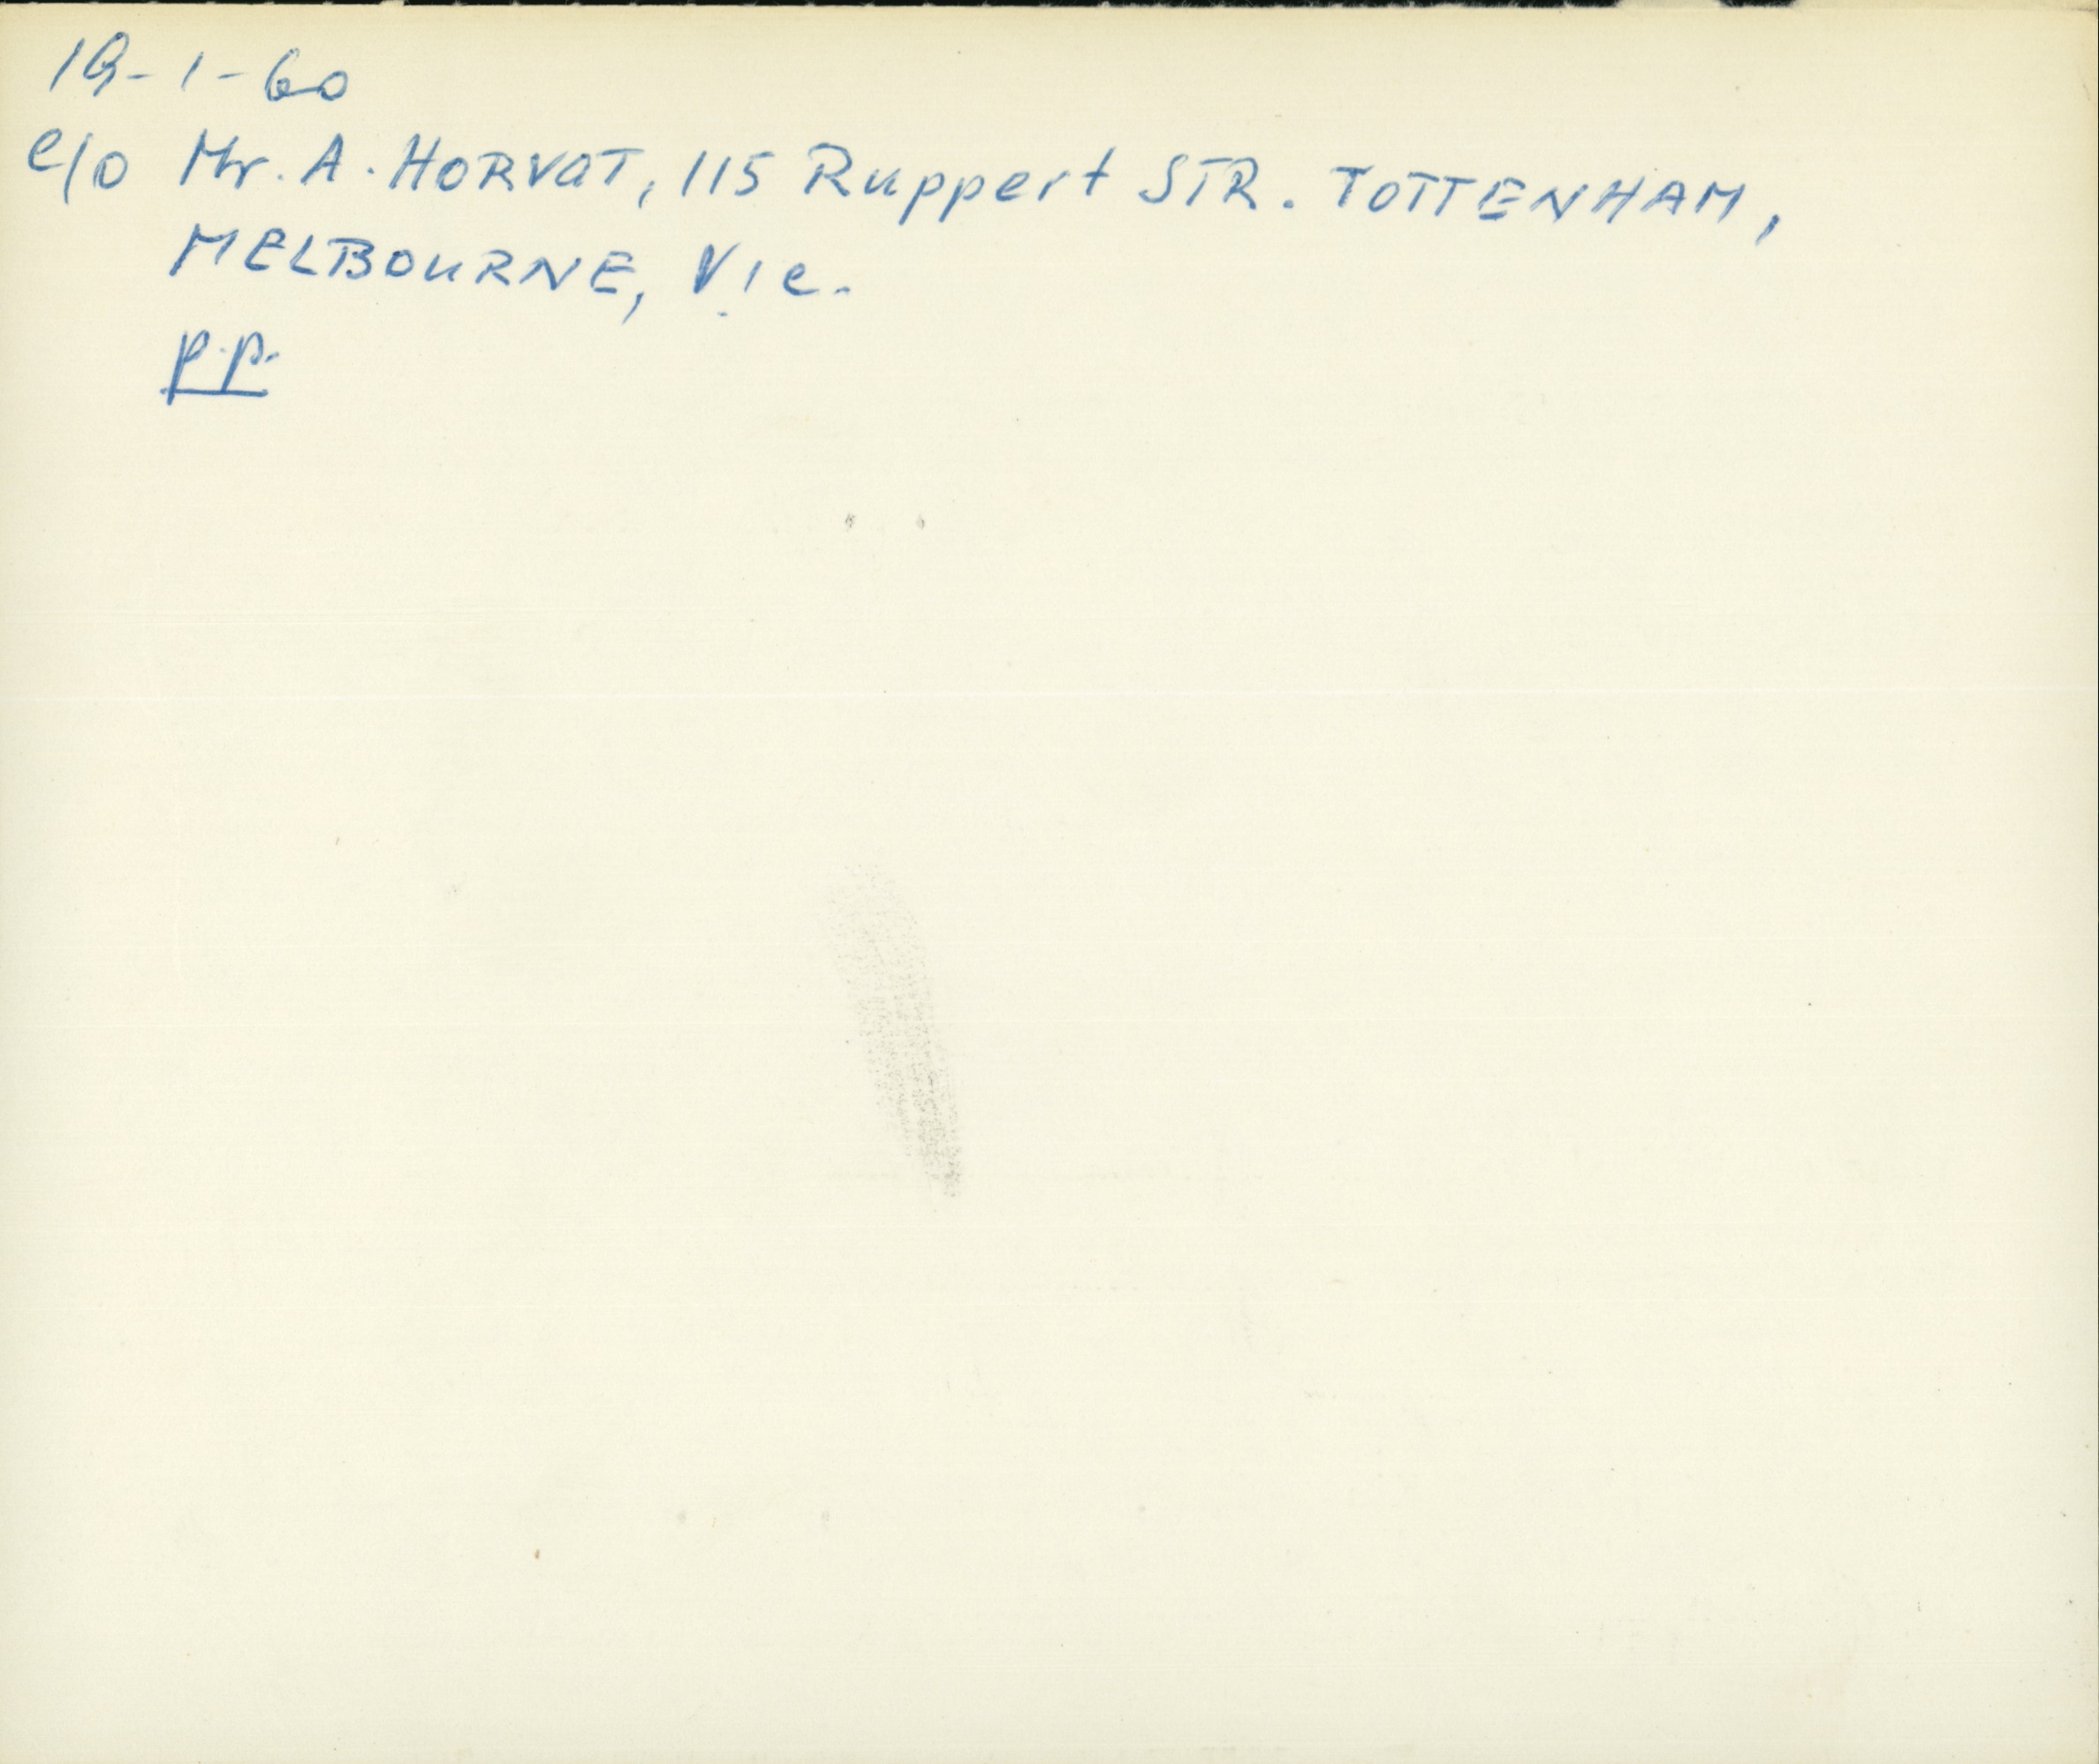 19-1-60
c/o Mr. A. HORVAT, 115 Ruppert STR. TOTTENHAM,
MELBOURNE, Vic.
p.p.